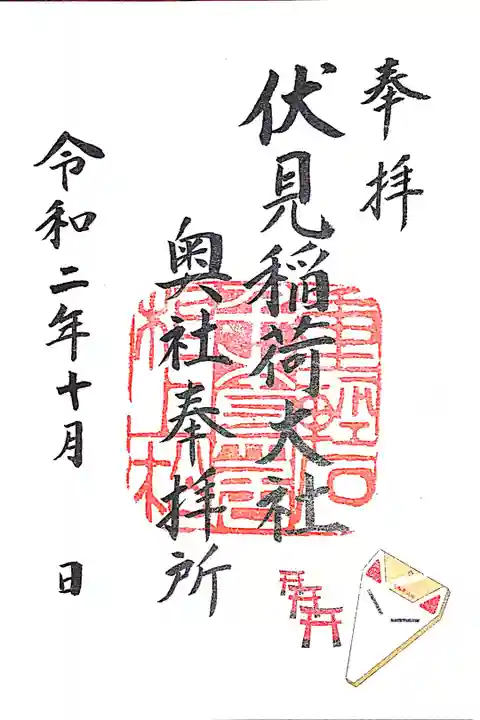 奉拝
伏見稲荷大社
奥社奉拝所
令和二年十月 日